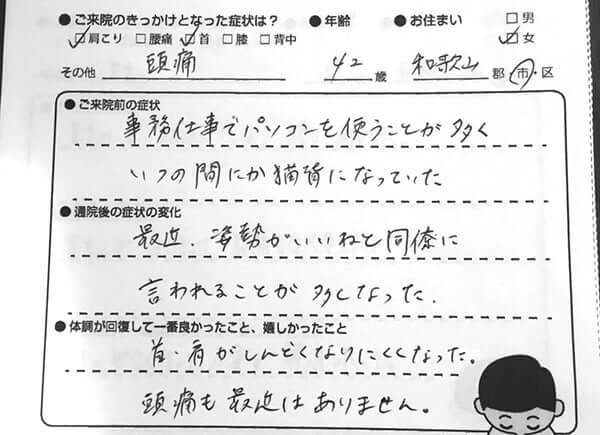 ●ご来院のきっかけとなった症状は？ ●年齢 ●お住まい □男
☑肩こり □腰痛 ☑首 □膝 □背中 ☑女
その他 頭痛 42歳 和歌山 郡・市・区
●ご来院前の症状
事務仕事でパソコンを使うことが多く
いつの間にか猫背になっていた
●通院後の症状の変化
最近、姿勢がいいねと同僚に
言われることが多くなった。
●体調が回復して一番良かったこと、嬉しかったこと
首、肩がしんどくなりにくくなった。
頭痛も最近はありません。